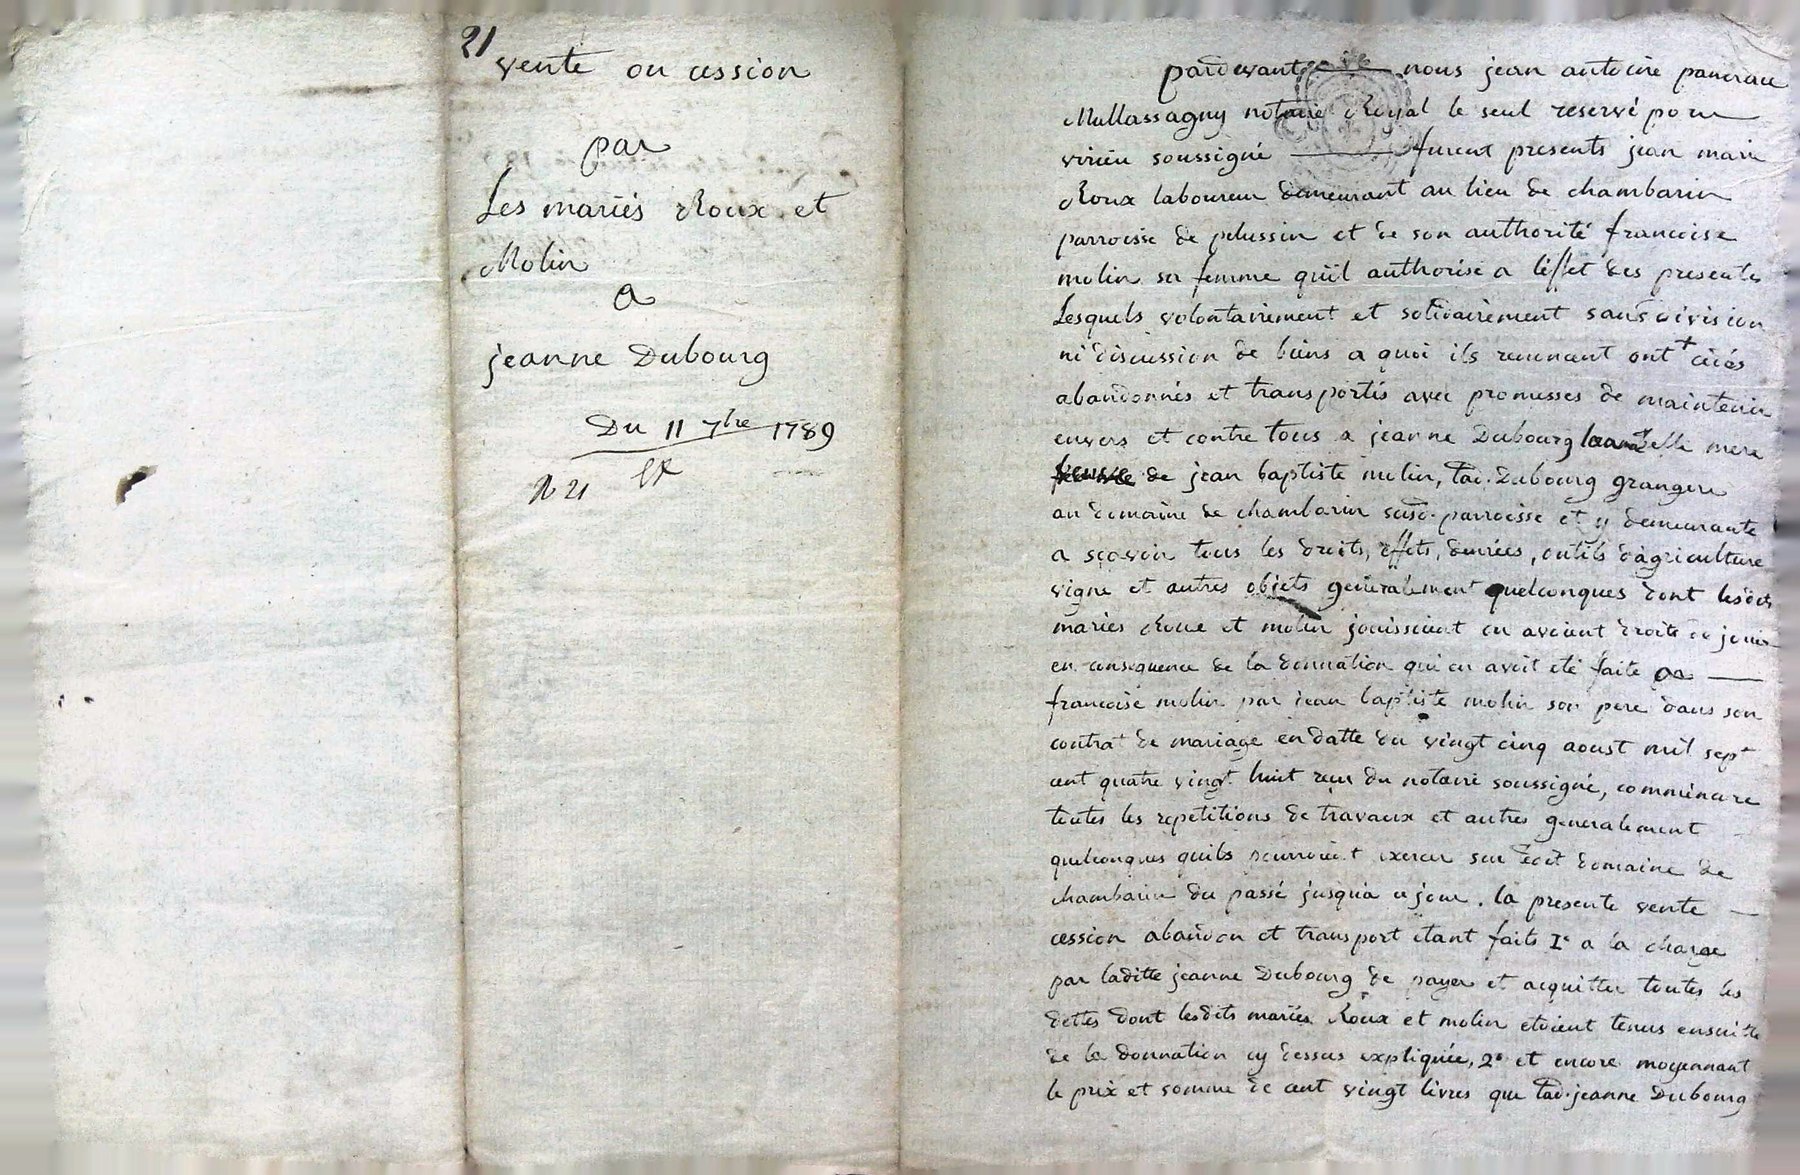 21
vente ou cession
par
Les mariés Roux et
Molin
a
jeanne Dubourg
Du 11 7bre 1789
N 21
pardevant nous jean antoine pancrace
Mullassagny notaire Royal le seul reservé pour
virieu soussigné furent presents jean marie
Roux laboureur demeurant au lieu de chambarin
parroisse de pelussin et de son authorité francoise
molin sa femme qu'il authorise a l'effet des presentes
Lesquels volontairement et solidairement sans division
ni discussion de biens a quoi ils renoncent ont + cédés
abandonnés et transportés avec promesses de maintenir
envers et contre tous a jeanne Dubourg belle mere
de jean baptiste molin, lad. Dubourg grangere
au domaine de chambarin susd. parroisse et y demeurante
a sçavoir tous les droits, effets, denrées, outils d'agriculture
vigne et autres objets généralement quelconques dont lesdits
mariés Roux et molin jouissoient ou avoient droits de jouir
en consequence de la donnation qui en avoit eté faite a
francoise molin par jean baptiste molin son pere dans son
contrat de mariage en datte du vingt cinq aoust mil sept
cent quatre vingt huit reçu du notaire soussigné, comm'encore
toutes les repetitions de travaux et autres generalement
quelconques quils pourroient exercer sur ledit domaine de
chambarin du passé jusqu'a ce jour. la presente vente
cession abandon et transport étant faits 1° a la charge
par laditte jeanne Dubourg de payer et acquitter toutes les
dettes dont lesdits mariés Roux et molin etoient tenus ensuitte
de la donnation cy dessus expliquée, 2° et encore moyennant
le prix et somme de cent vingt livres que lad. jeanne Dubourg